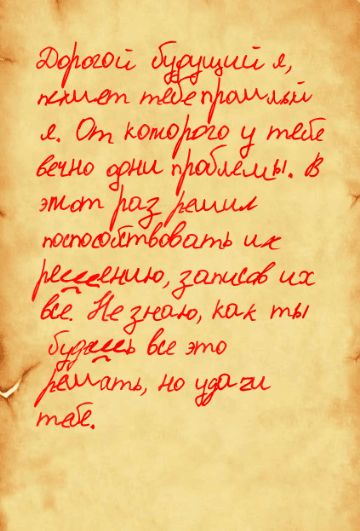 Дорогой будущий я,
пишет тебе прошлый
я. От которого у тебе
вечно одни проблемы. В
этот раз решил
поспособствовать их
решению, записав их
все. Не знаю, как ты
будешь все это
решать, но удачи
тебе.